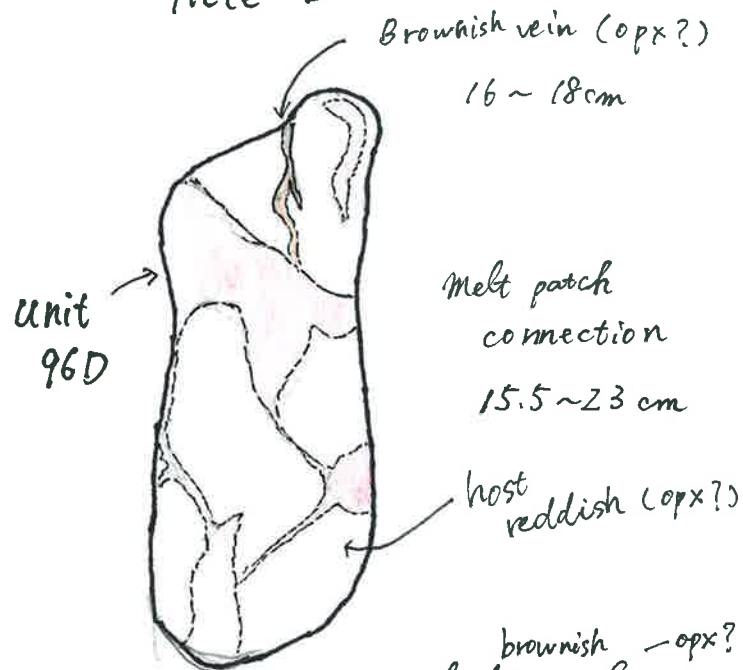 Brownish vein (opx?)
16 ~ 18cm
Unit
96D
Melt patch
connection
15.5~23 cm
host
reddish (opx?)
brownish — opx?